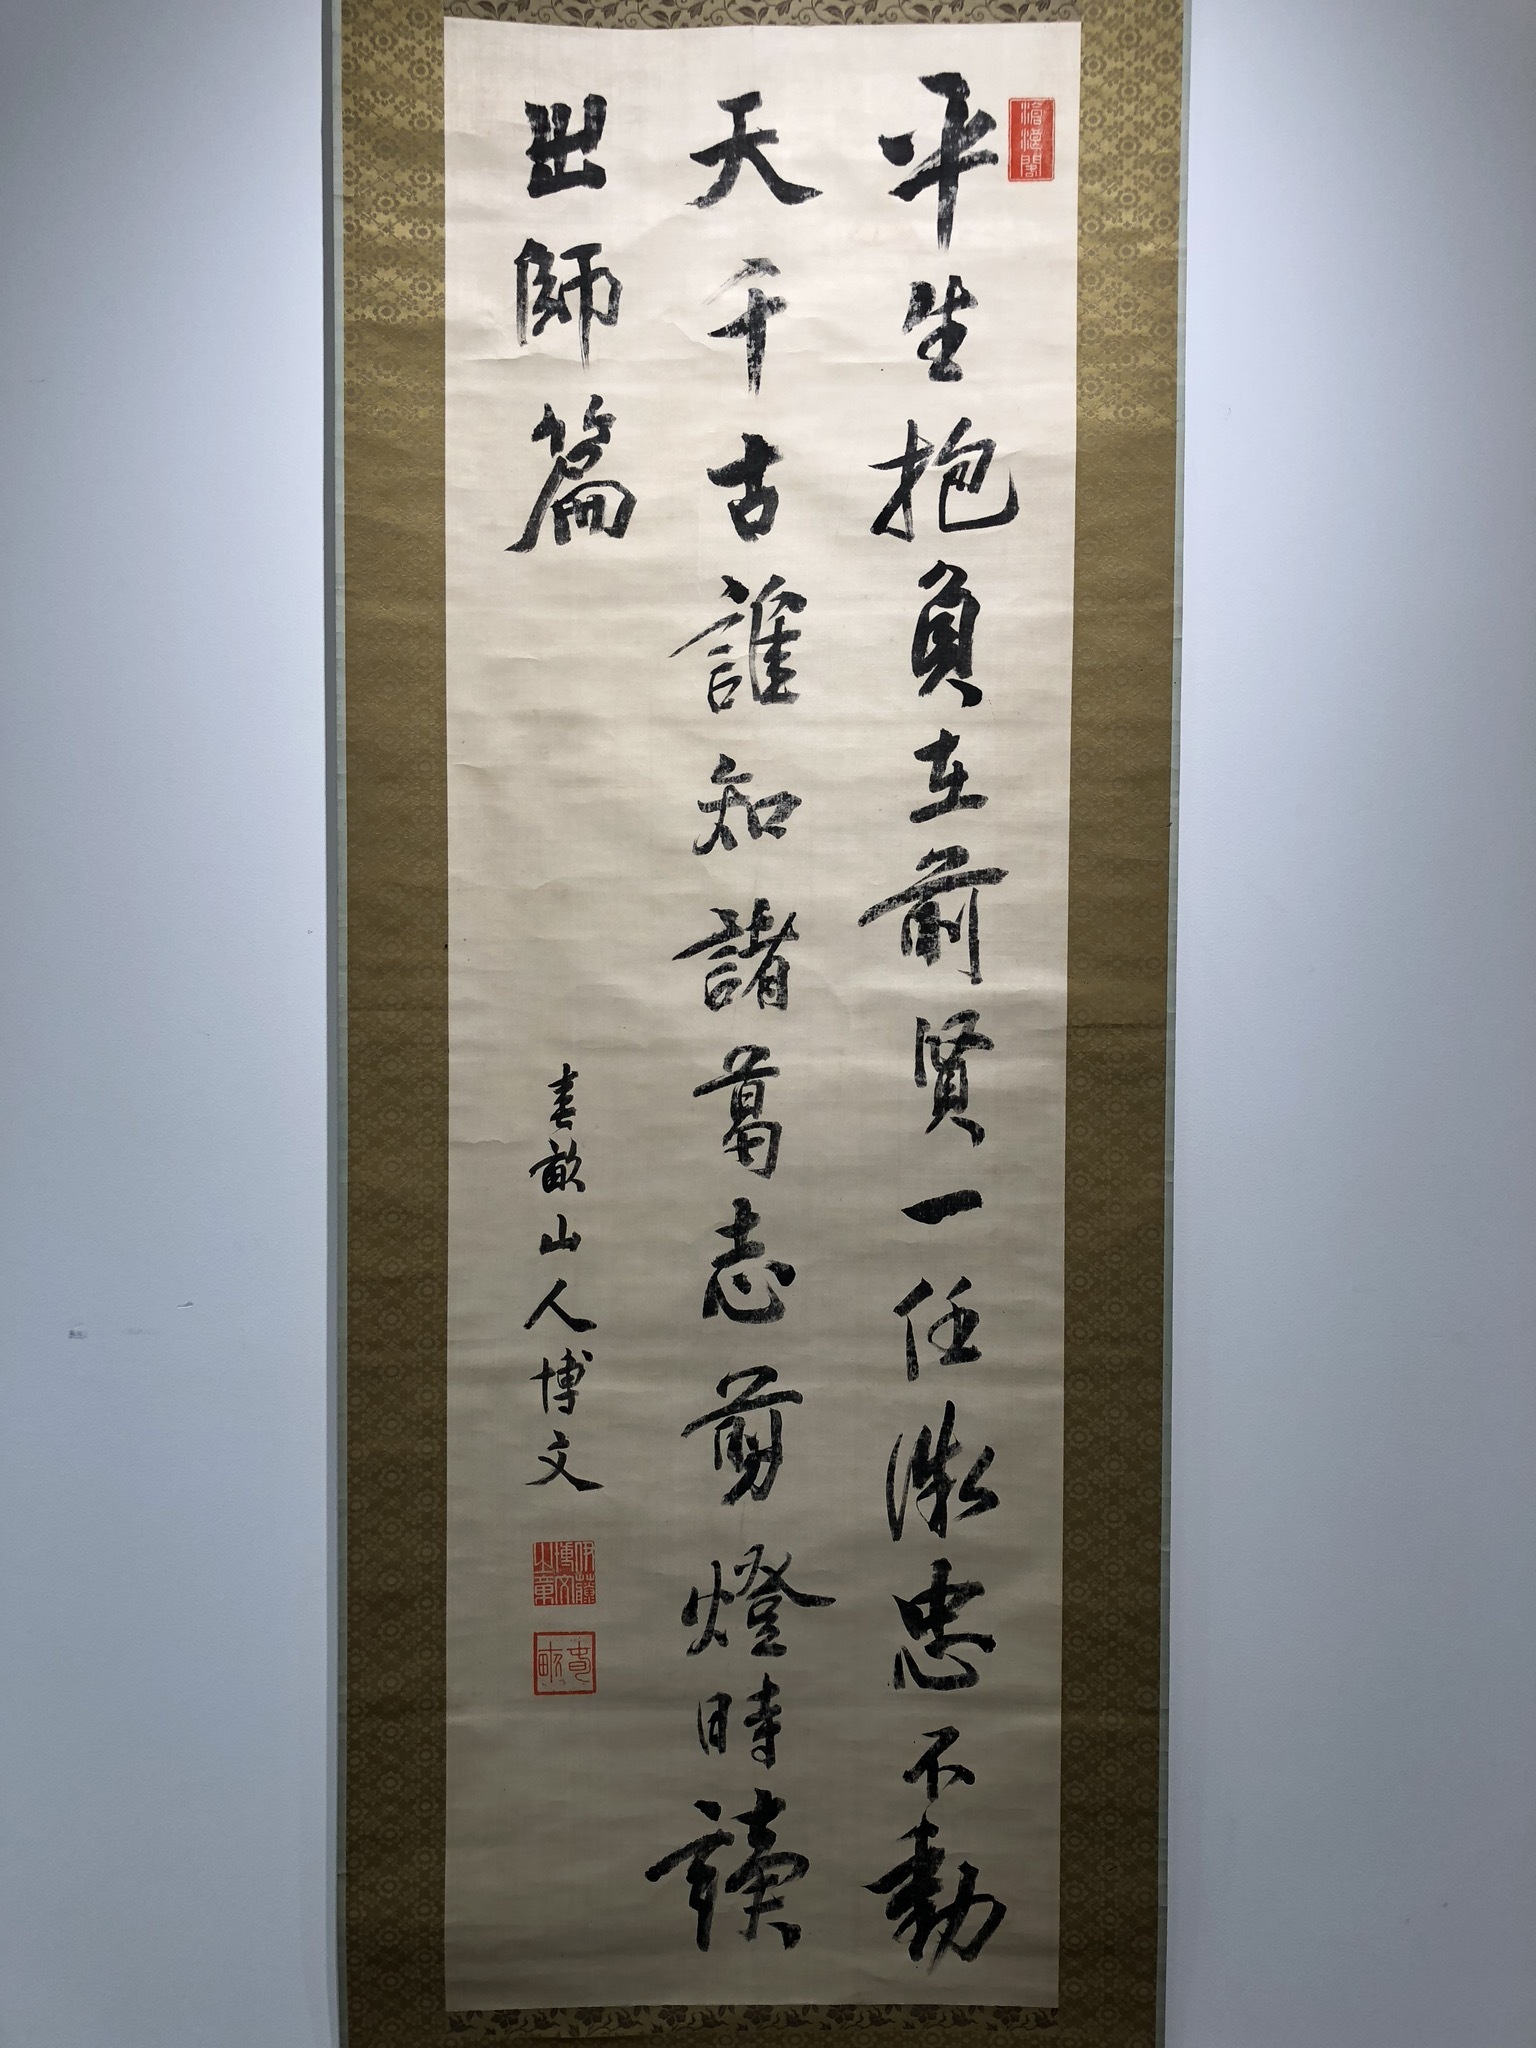 滄浪閣
平生抱負在前賢一任微忠不動
天千古誰知諸葛志剪燈時讀
出師篇
春畝山人博文
伊藤博文之章
春畝